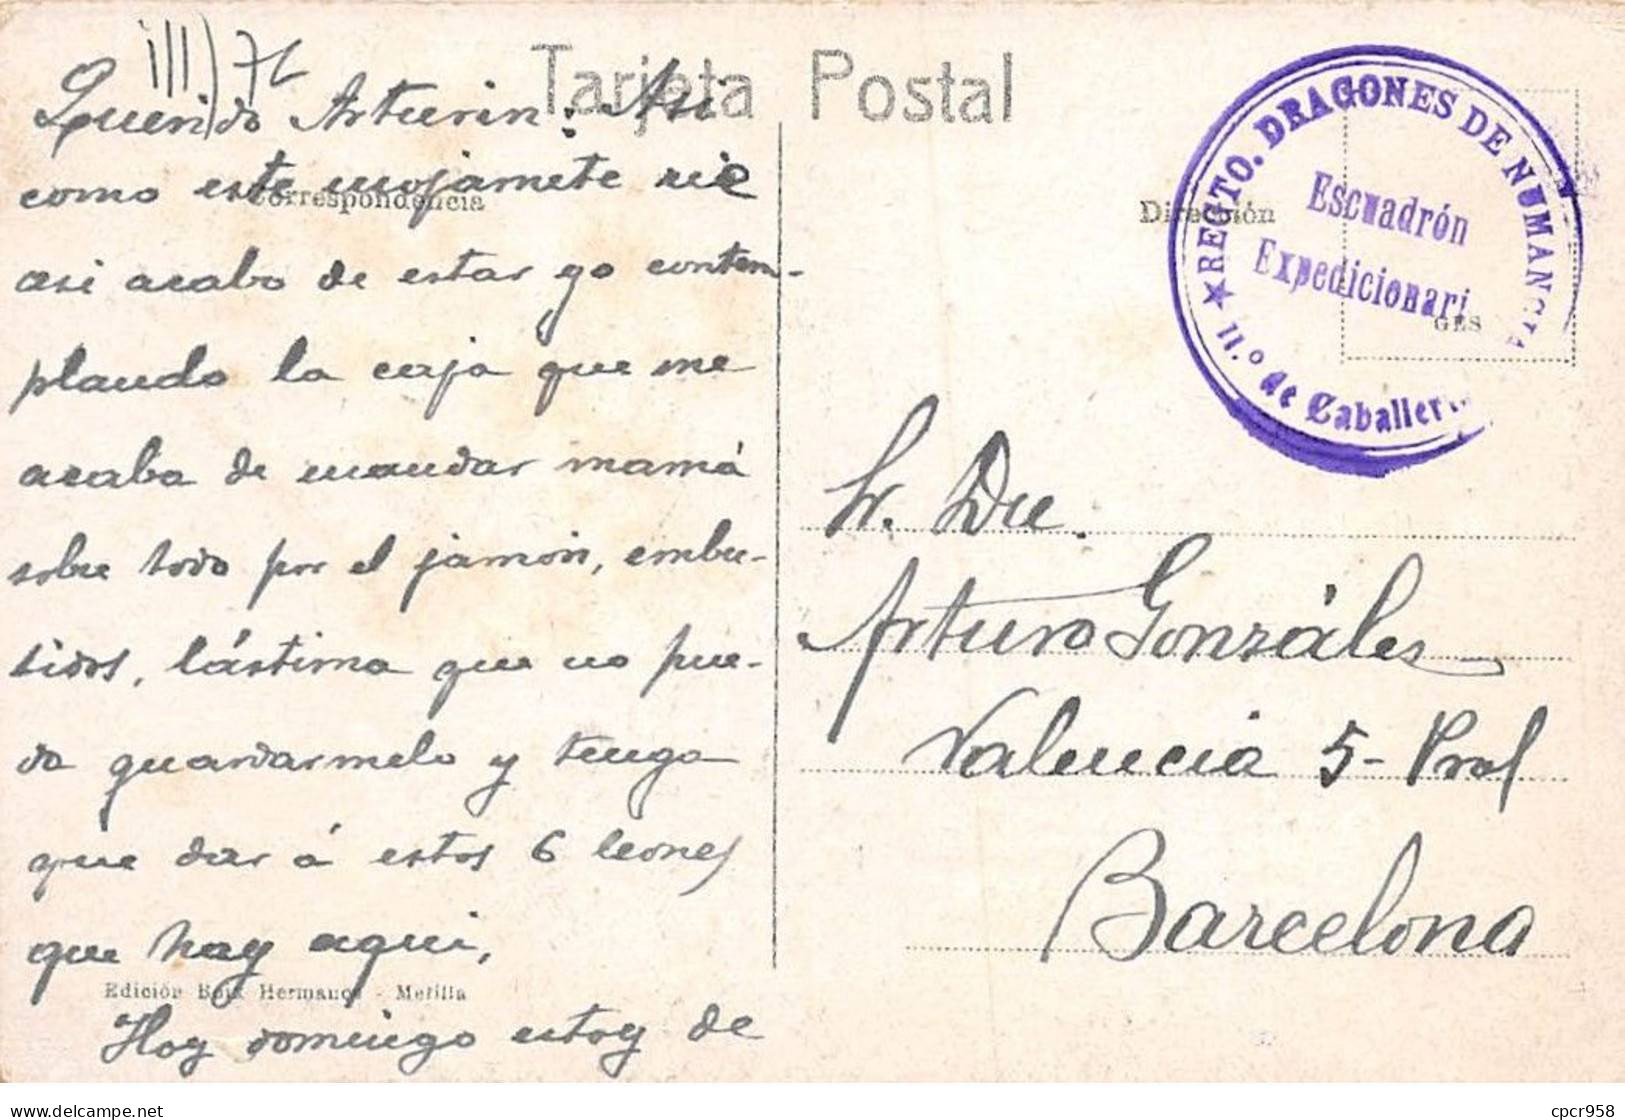 Tarjeta Postal
Correspondencia
Querido Arturin: Asi
como este mojamete rie
asi acabo de estar yo contem-
plando la caja que me
acaba de mandar mamá
sobre todo por el jamón, embu-
tidos, lástima que no pue-
da guardarmelo y tengo
que dar á estos 6 leones
que hay aqui,
Edición Boix Hermanos - Melilla
Hoy domingo estoy de
REGTO. DRAGONES DE NUMANCIA
11.º de Caballeri
Escuadrón
Expedicionari
Dirección
GES
Sr. Dn.
Arturo Gonzáles
Valencia 5 - Pral
Barcelona
delcampe.net
cpcr958